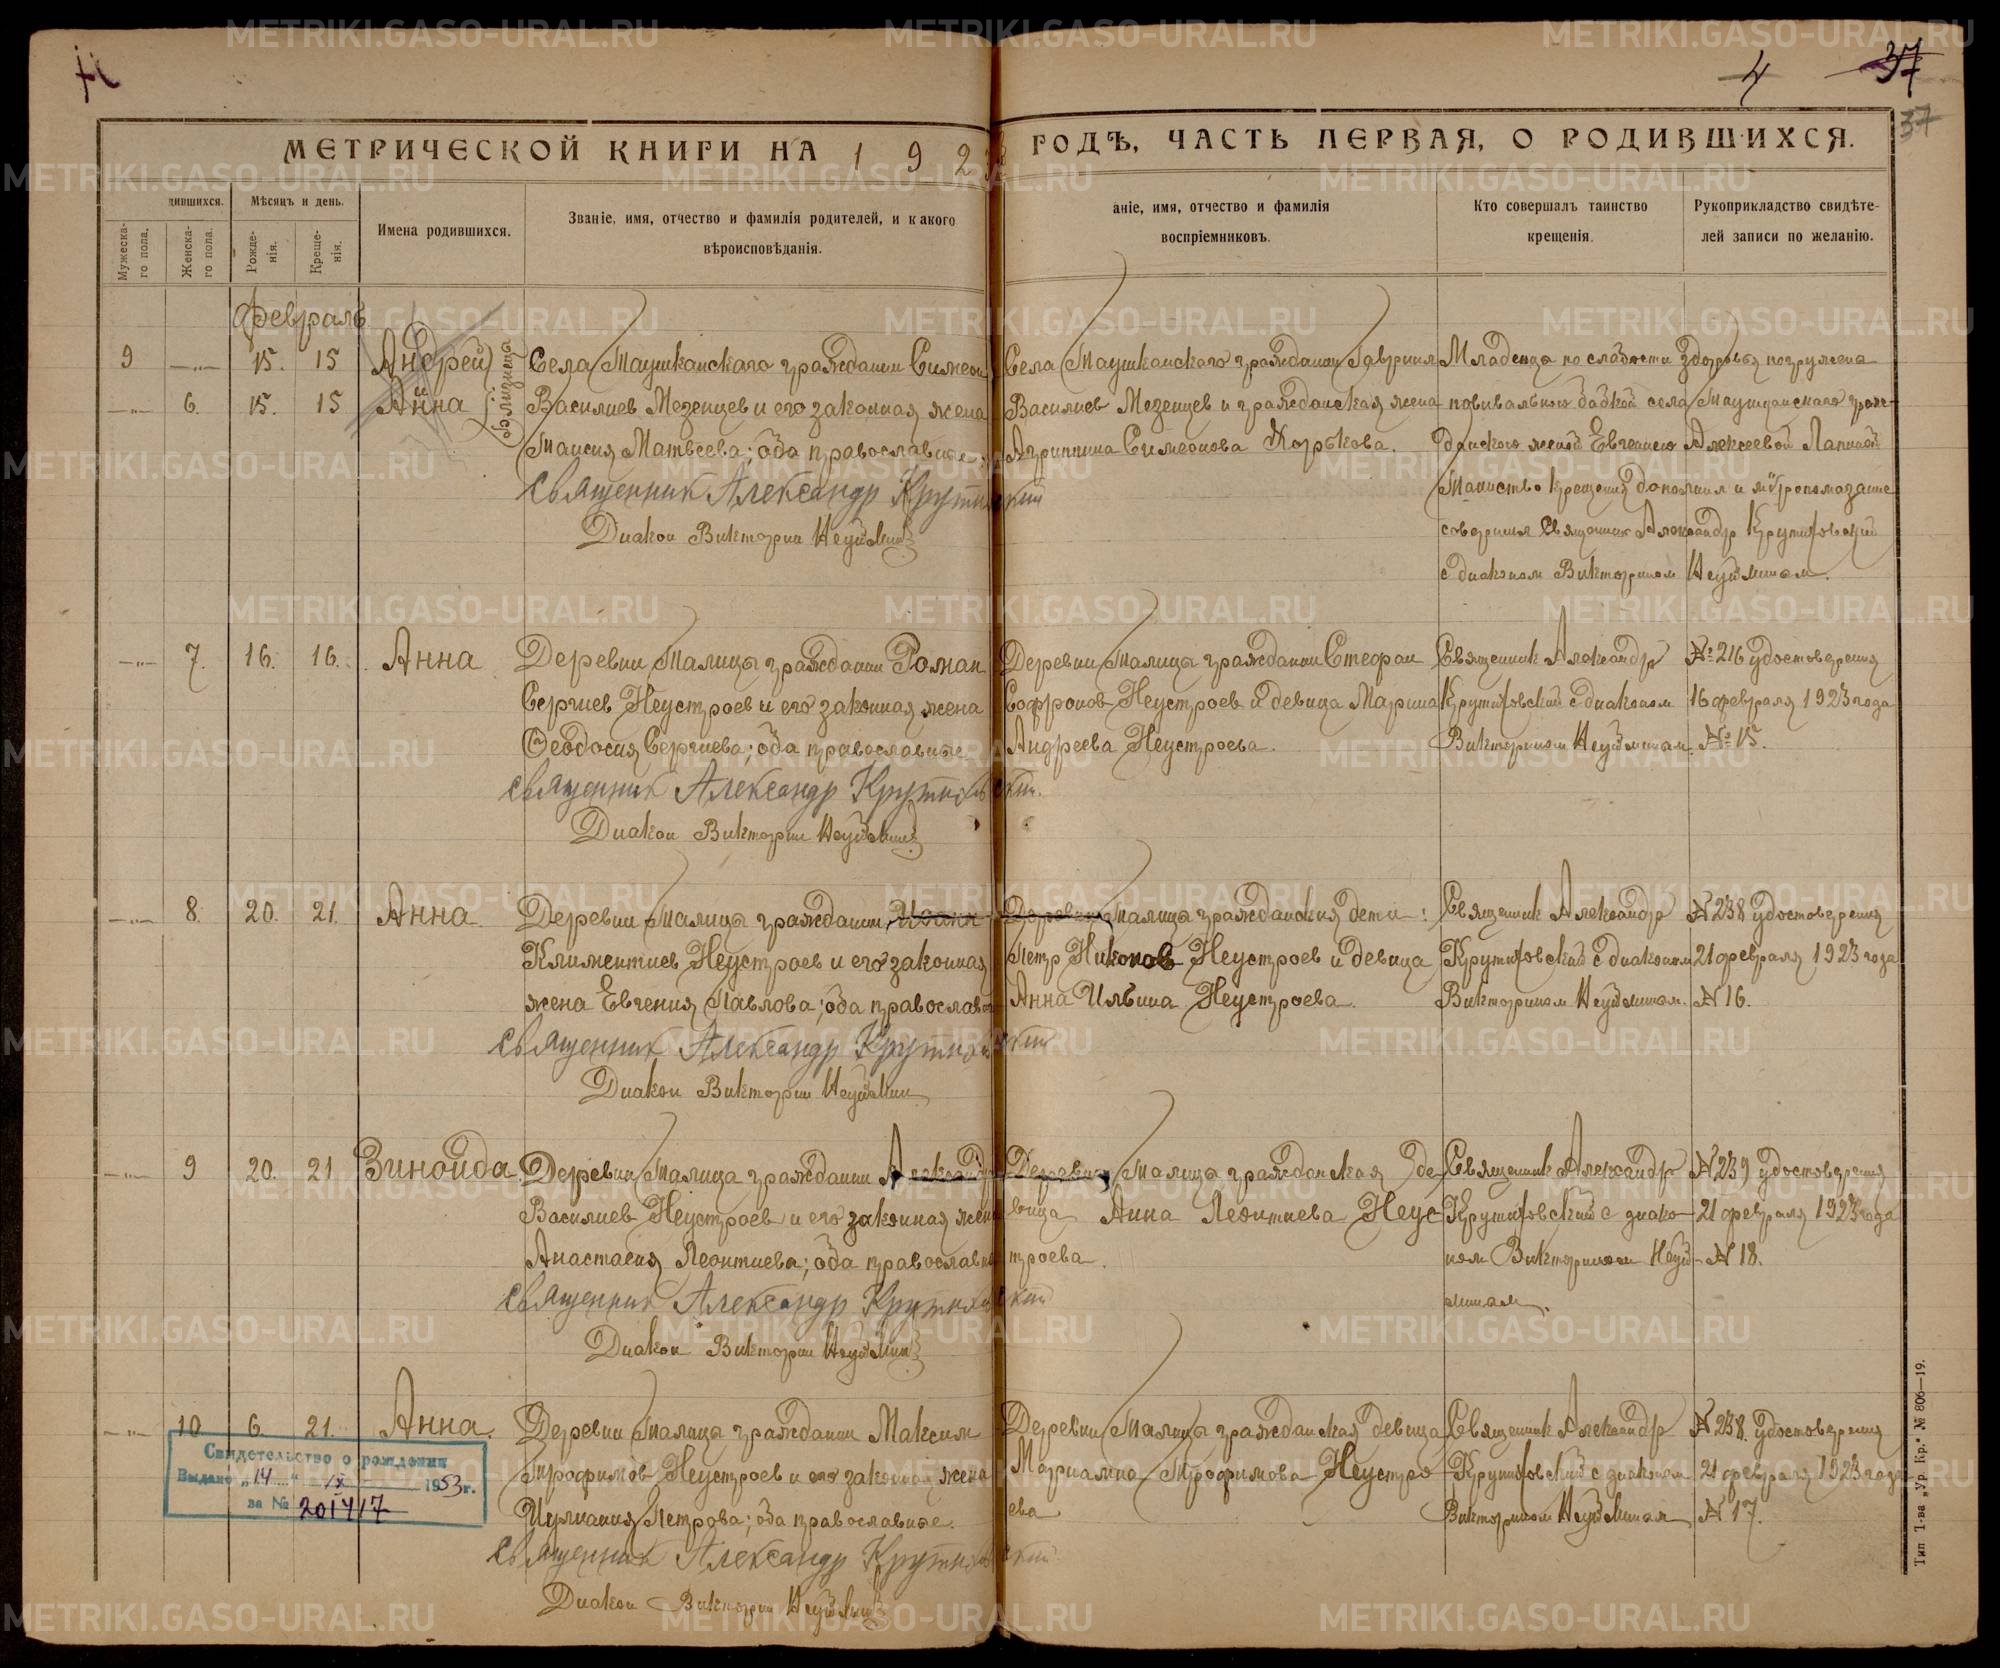 37
4
37
МЕТРИЧЕСКОЙ КНИГИ НА 1923 ГОДѢ, ЧАСТЬ ПЕРВАЯ, О РОДИВШИХСЯ.
дившихся.
Мѣсяцъ и день.
Мужеска-
го пола.
Женска-
го пола.
Рожде-
нія.
Креще-
нія.
Имена родившихся.
Званіе, имя, отчество и фамилія родителей, и какого
вѣроисповѣданія.
аніе, имя, отчество и фамилія
воспріемниковъ.
Кто совершалъ таинство
крещенія.
Рукоприкладство свидѣте-
лей записи по желанію.
Февраль
9 —„— 15. 15 Андрей
—„— 6. 15. 15 Анна
близнецы
Села Таушканского гражданин Симеон
Василиев Мезенцев и его законная жена
Таисия Матвеева; оба православные.
Священник Александр Крутиховский
Диакон Викторин Неуймин
Села Таушканского гражданин Гавриил
Василиев Мезенцев и гражданская жена
Агриппина Симеонова Козрькова.
Младенца по слабости здоровья погружена
повивальною бабкой села Таушканского граж-
данского женой Евгениею Алексеевой Лапиной
Таинство крещения дополнил и мѵропомазание
совершил Священник Александр Крутиховский
с диаконом Викторином Неуйминам.
—„— 7. 16. 16. Анна
Деревни Талицы гражданин Роман
Сергиев Неустроев и его законная жена
Феодосия Сергиева; оба православные
Священник Александр Крутиховский.
Диакон Викторин Неуймин
Деревни Талицы гражданин Стефан
Софронов Неустроев и девица Марина
Андреева Неустроева.
Священник Александр
Крутиховский с диаконом
Викторином Неуйминам.
№ 216 удостоверения
16 февраля 1923 года
№ 15.
—„— 8. 20. 21. Анна.
Деревни Талицы гражданин Иоанн
Климентиев Неустроев и его законная
жена Евгения Павлова; оба православн
Священник Александр Крутиховский
Диакон Викторин Неуймин
Деревни Талицы гражданския дети:
Петр Никонов Неустроев и девица
Анна Ильина Неустроева.
Священник Александр
Крутиховский с диаконом
Викторином Неуйминам.
№ 238 удостоверения
21 февраля 1923 года
№ 16.
—„— 9 20. 21 Зиноида.
Деревни Талица гражданин Александр
Василиев Неустроев и его законная жена
Анастасия Леонтиева; оба православны
Священник Александр Крутиховский
Диакон Викторин Неуймин
Деревни Талица гражданская де-
вица Анна Леонтиева Неус-
троева.
Священник Александр
Крутиховский с диако-
ном Викторином Неуй-
минам.
№ 239 удостоверения
21 февраля 1923 года
№ 18.
—„— 10 6. 21. Анна.
Деревни Талицы гражданин Максим
Трофимов Неустроев и его законная жена
Иулиания Петрова; оба православные.
Священник Александр Крутиховский
Диакон Викторин Неуймин
Деревни Талицы гражданская девица
Мариамна Трофимова Неустро-
ева
Священник Александр
Крутиховский с диаконом
Викторином Неуйминам
№ 238. удостоверения
21 февраля 1923 года
№ 17.
Свидетельство о рождении
Выдано „14“ IX 1953 г.
за № 201417
Тип Т-ва „Ур. Кр.“ № 806—19.
METRIKI.GASO-URAL.RU